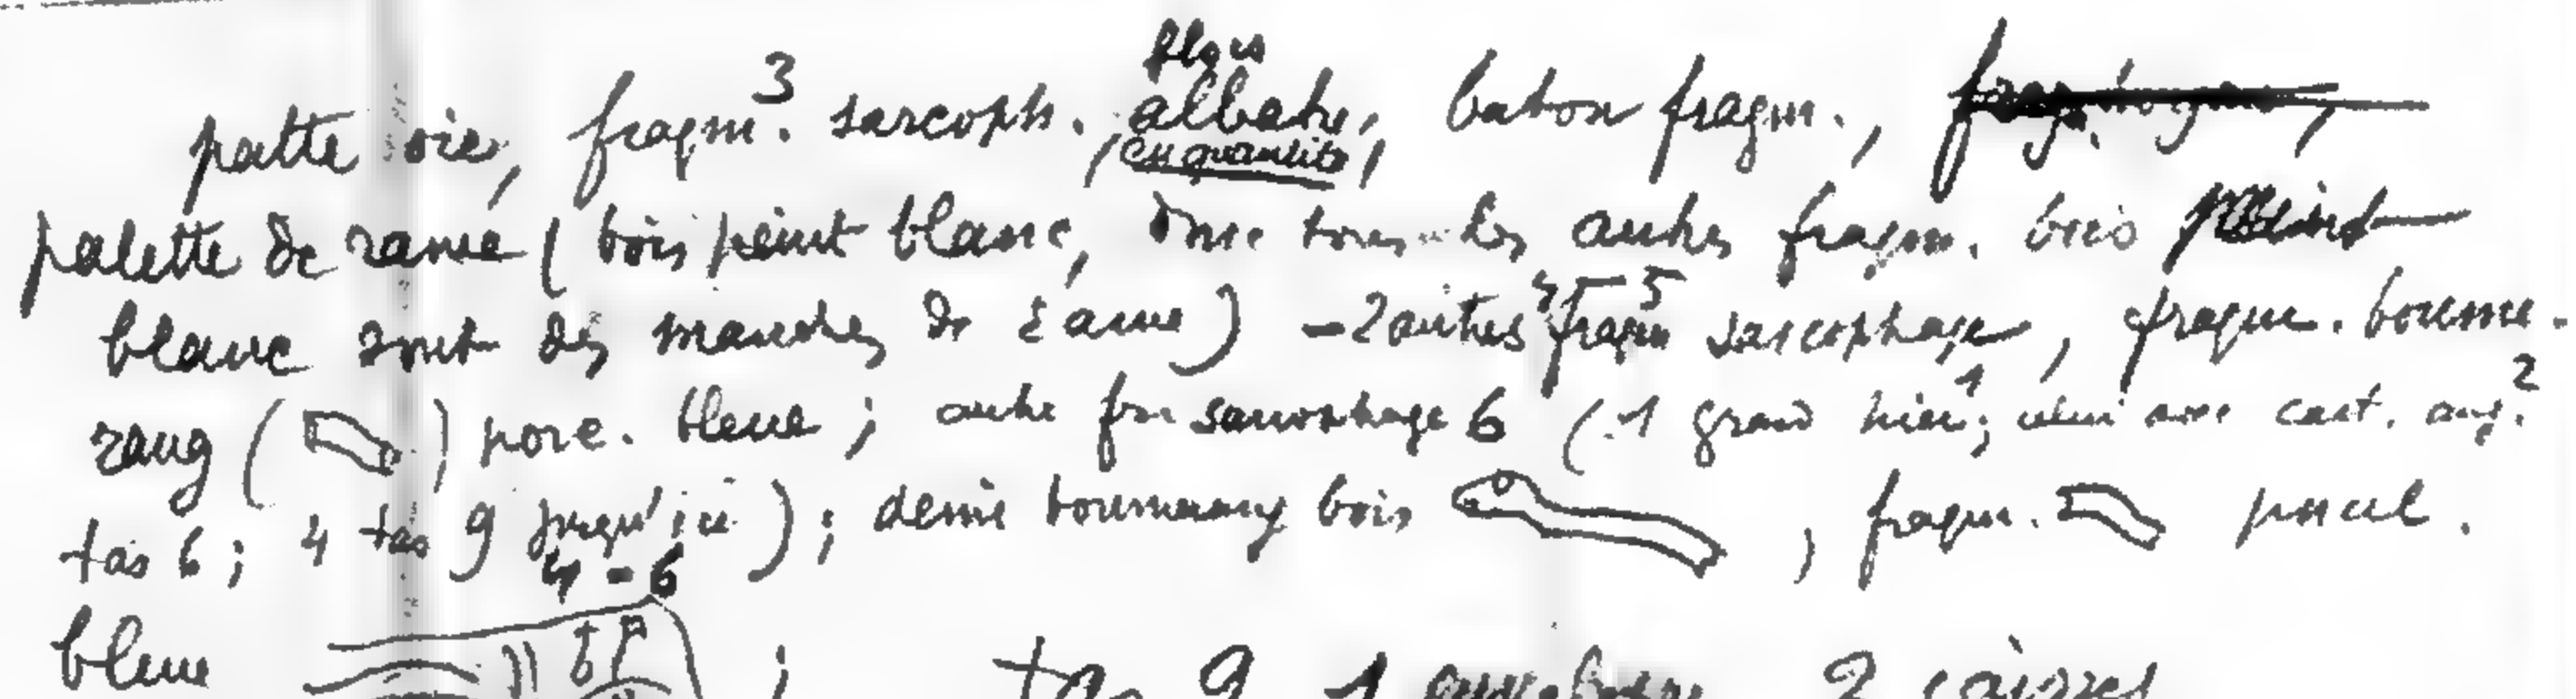 patte oie, fragm. 3 sarcoph., albatre, en quantité, baton fragm.,
palette de rame (bois peint blanc, donc tous les autres fragm. bois
blanc sont des manches de rame) - 2 autres fragm 4-5 sarcophage, fragm. boume-
rang ( ) porc. bleue ; autre fr sarcophage 6 (1 grand hier 1; avec cart. 2
tas 6 ; 4 tas 9 jusqu'ici ) ; demi boumerang bois , fragm. porcel.
4 - 6
bleue ; tas 9 1 2 caisses